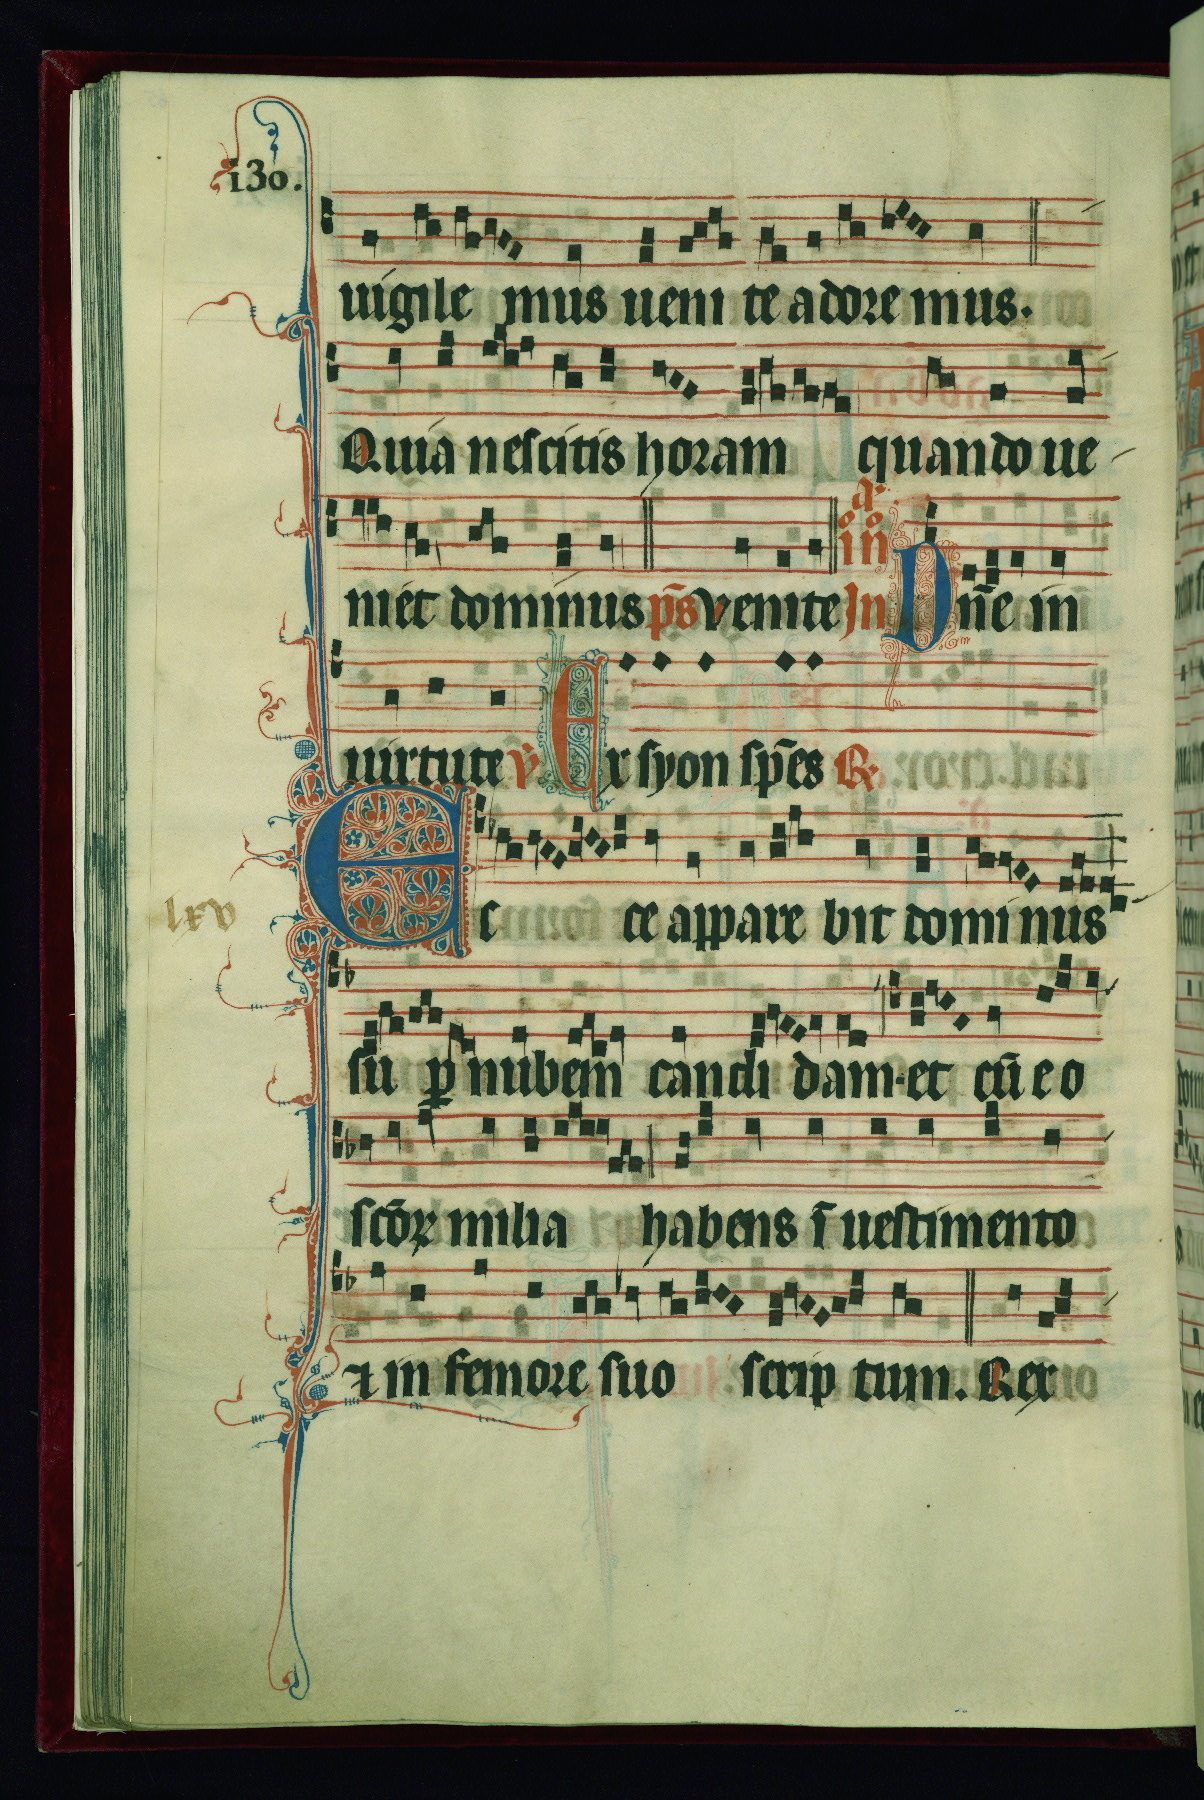 130.
uigile mus ueni te adore mus.
Quia nescitis horam quando ue
niet dominus p̄s Venite Jn Dn̄e in
a͛
in̊
uirtute ꝟ. Ex syon sp̄es ℟.
lxv
Ecce appare bit dominus
su ꝑ nubem candi dam. et cū eo
scōꝝ milia habens ī uestimento
⁊ in femore suo scrip tum. Rex